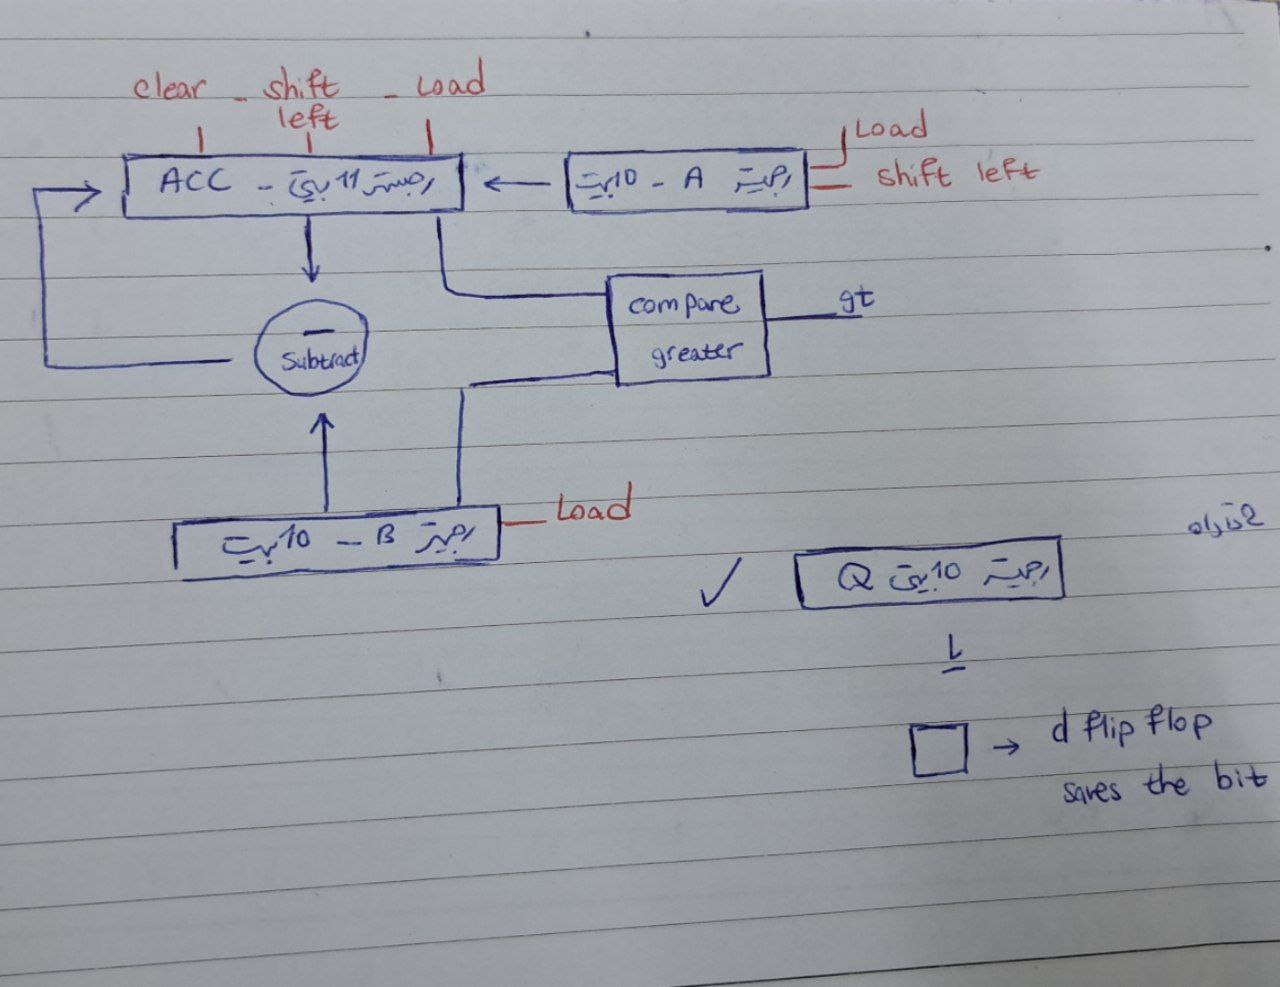 clear - shift left - Load
ACC - رجیستر 11 بیتی
رجیستر A - 10 بیت
Load
shift left
compare
greater
gt
-
Subtract
رجیستر B - 10 بیت
Load
رجیستر 10 بیتی Q
1
→ d flip flop
saves the bit